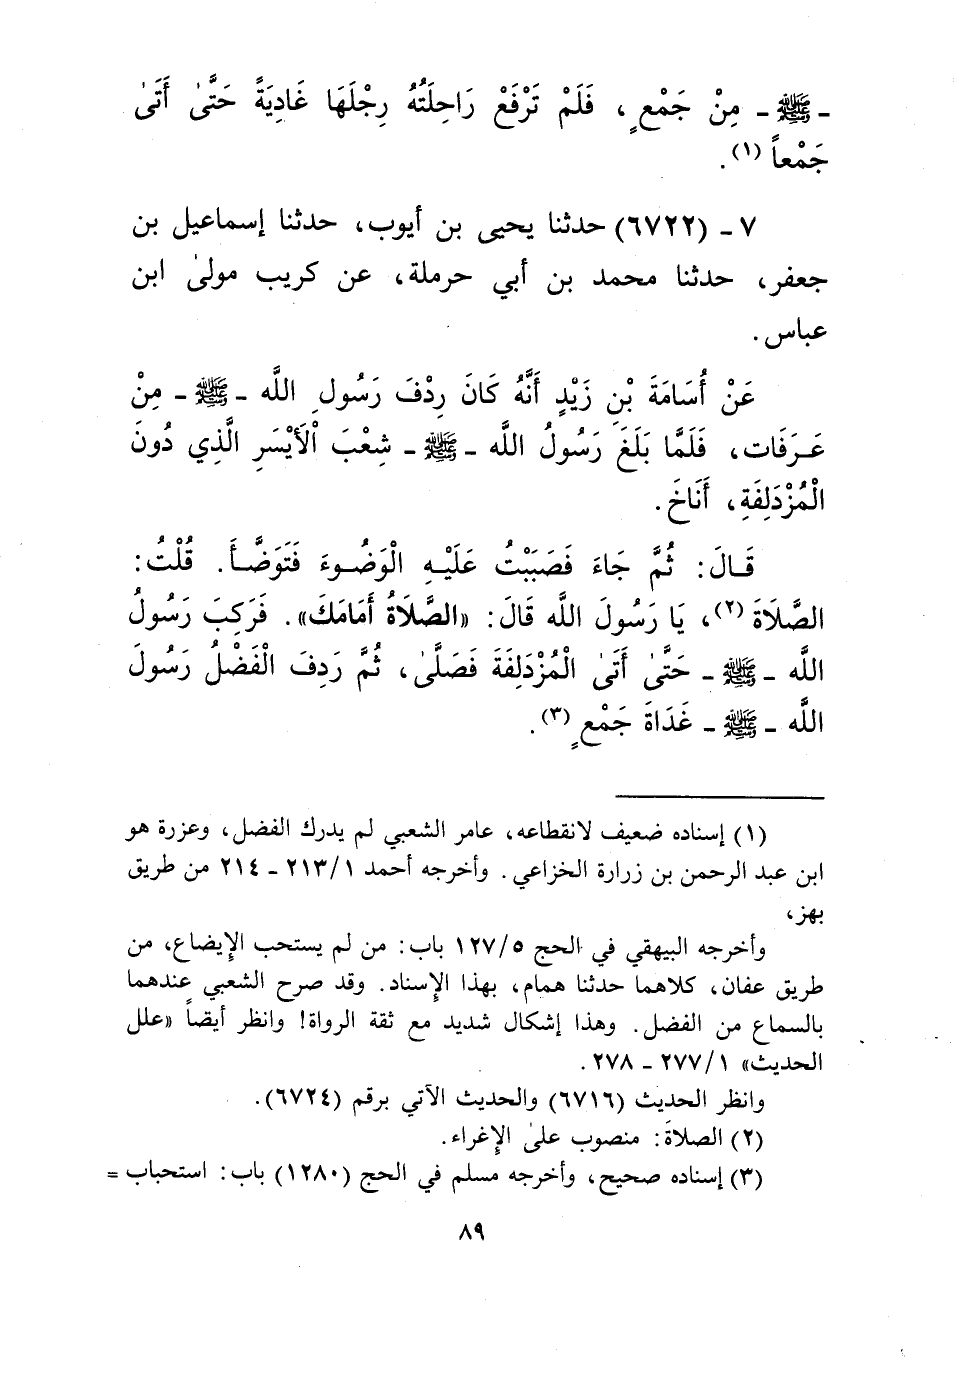 ـ ﷺ ـ مِنْ جَمْعٍ، فَلَمْ تَرْفَعْ رَاحِلَتُهُ رِجْلَهَا غَادِيَةً حَتَّىٰ أَتَىٰ
جَمْعاً (١).
٧ ـ (٦٧٢٢) حدثنا يحيى بن أيوب، حدثنا إسماعيل بن
جعفر، حدثنا محمد بن أبي حرملة، عن كريب مولىٰ ابن
عباس.
عَنْ أُسَامَةَ بْنِ زَيْدٍ أَنَّهُ كَانَ رِدْفَ رَسُولِ اللَّه ـ ﷺ ـ مِنْ
عَرَفَات، فَلَمَّا بَلَغَ رَسُولُ اللَّه ـ ﷺ ـ شِعْبَ اْلأَيْسَرِ الَّذِي دُونَ
الْمُزْدَلِفَةِ، أَنَاخَ.
قَالَ: ثُمَّ جَاءَ فَصَبَبْتُ عَلَيْهِ الْوَضُوءَ فَتَوَضَّأَ. قُلْتُ:
الصَّلَاةَ (٢)، يَا رَسُولَ اللَّه قَالَ: «الصَّلَاةُ أَمَامَكَ». فَرَكِبَ رَسُولُ
اللَّه ـ ﷺ ـ حَتَّىٰ أَتَىٰ الْمُزْدَلِفَةَ فَصَلَّىٰ، ثُمَّ رَدِفَ الْفَضْلُ رَسُولَ
اللَّه ـ ﷺ ـ غَدَاةَ جَمْعٍ (٣).
(١) إسناده ضعيف لانقطاعه، عامر الشعبي لم يدرك الفضل، وعزرة هو
ابن عبد الرحمن بن زرارة الخزاعي. وأخرجه أحمد ٢١٣/١ ـ ٢١٤ من طريق
بهز،
وأخرجه البيهقي في الحج ١٢٧/٥ باب: من لم يستحب الإيضاع، من
طريق عفان، كلاهما حدثنا همام، بهذا الإسناد. وقد صرح الشعبي عندهما
بالسماع من الفضل. وهذا إشكال شديد مع ثقة الرواة! وانظر أيضاً «علل
الحديث» ٢٧٧/١ ـ ٢٧٨.
وانظر الحديث (٦٧١٦) والحديث الآتي برقم (٦٧٢٤).
(٢) الصلاةَ: منصوب علىٰ الإغراء.
(٣) إسناده صحيح، وأخرجه مسلم في الحج (١٢٨٠) باب: استحباب =
٨٩